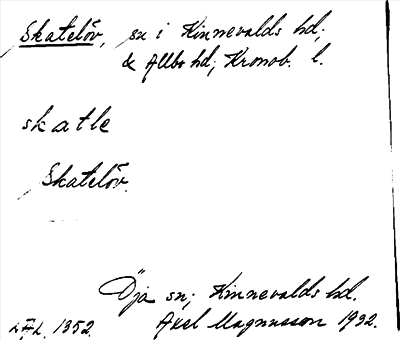 Skatelöv, sn i Kinnevalds hd;
& Allbo hd; Kronob. l.
skatle
Skatelöv.
Öja sn; Kinnevalds hd.
Axel Magnusson 1932.
1352.